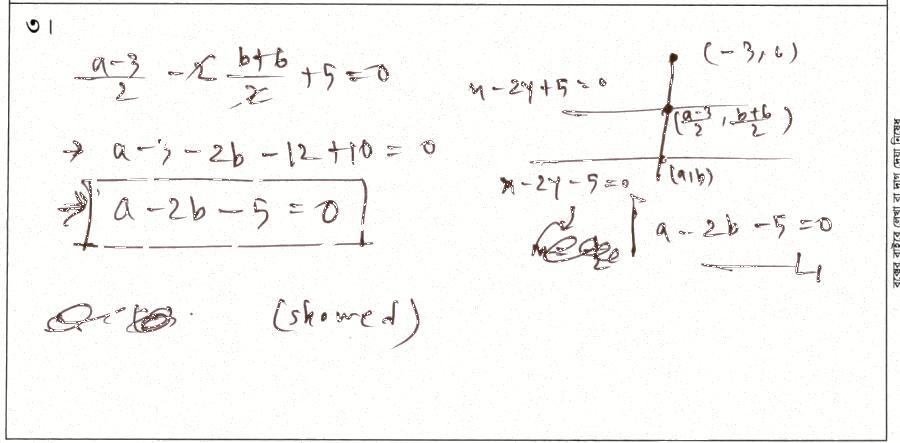 ৩।
(a-3)/2 - 2 (b+6)/2 + 5 = 0
→ a - 3 - 2b - 12 + 10 = 0
→ a - 2b - 5 = 0
(showed)
(-3, 6)
x - 2y + 5 = 0
((a-3)/2, (b+6)/2)
x - 2y - 5 = 0
(a,b)
a - 2b - 5 = 0
বক্সের বাইরে লেখা বা দাগ দেয়া নিষেধ